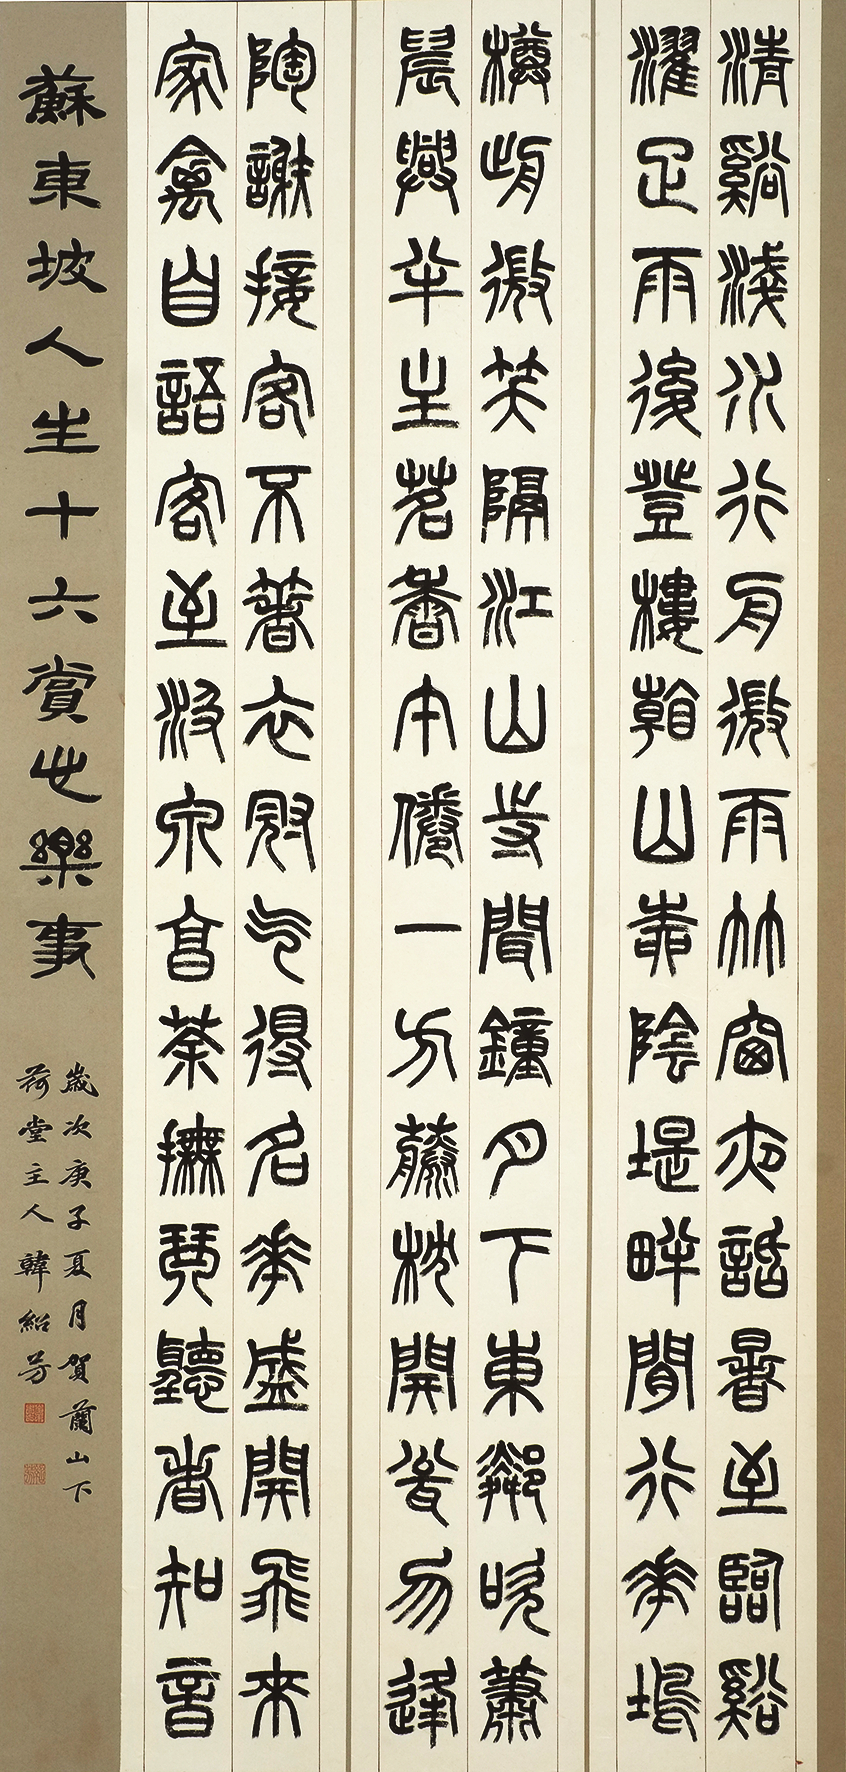 清谿淺水行舟微雨竹窗夜話暑至臨谿
濯足雨後登樓看山柳陰堤畔閒行花塢
樽前微笑隔江山寺聞鐘月下東鄰吹簫
晨興半主茗香午倦一方藤枕開甕勿逢
陶謝接客不著衣冠乞得名花盛開飛來
家禽自語客至汲泉烹茶撫琴聽者知音
蘇東坡人生十六賞心樂事
歲次庚子夏月賀蘭山下
荷堂主人韓紹芳